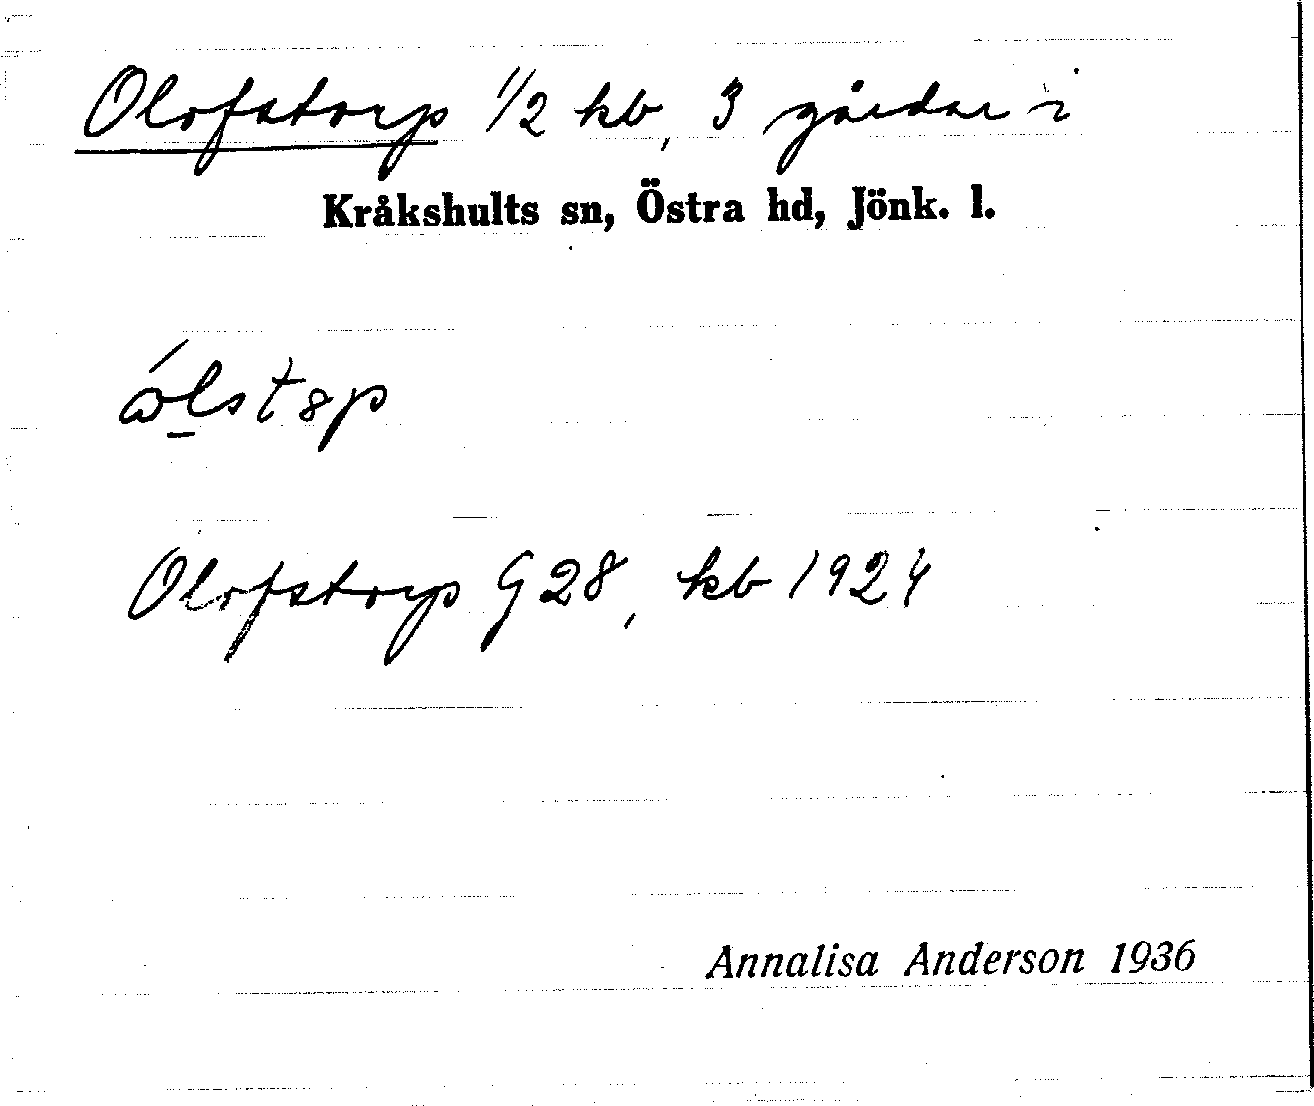 Olofstorp 1/2 kb, 3 gårdar i
Kråkshults sn, Östra hd, Jönk. l.
Olofstorp G 28, kb 1924
Annalisa Anderson 1936